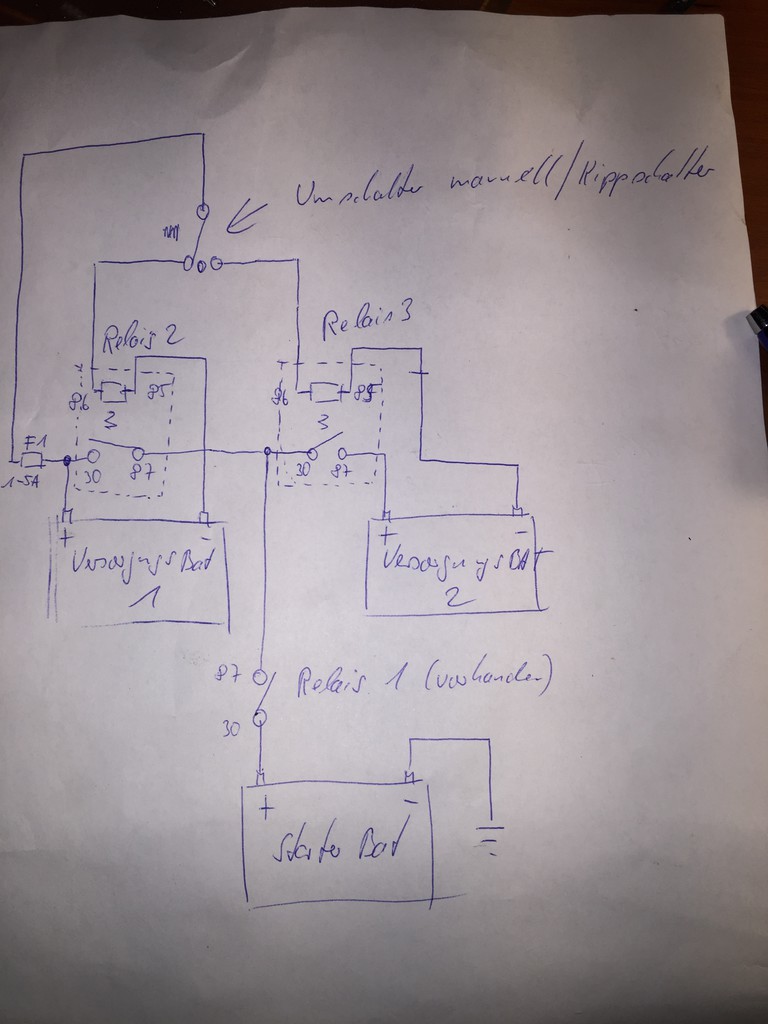 Umschalter manuell/Kippschalter
Relais 2
Relais 3
86
85
86
85
3
3
F1
1-5A
30
87
30
87
+
-
+
-
VersorgungsBat
1
VersorgungsBat
2
87
Relais 1 (vorhanden)
30
+
-
Starter Bat